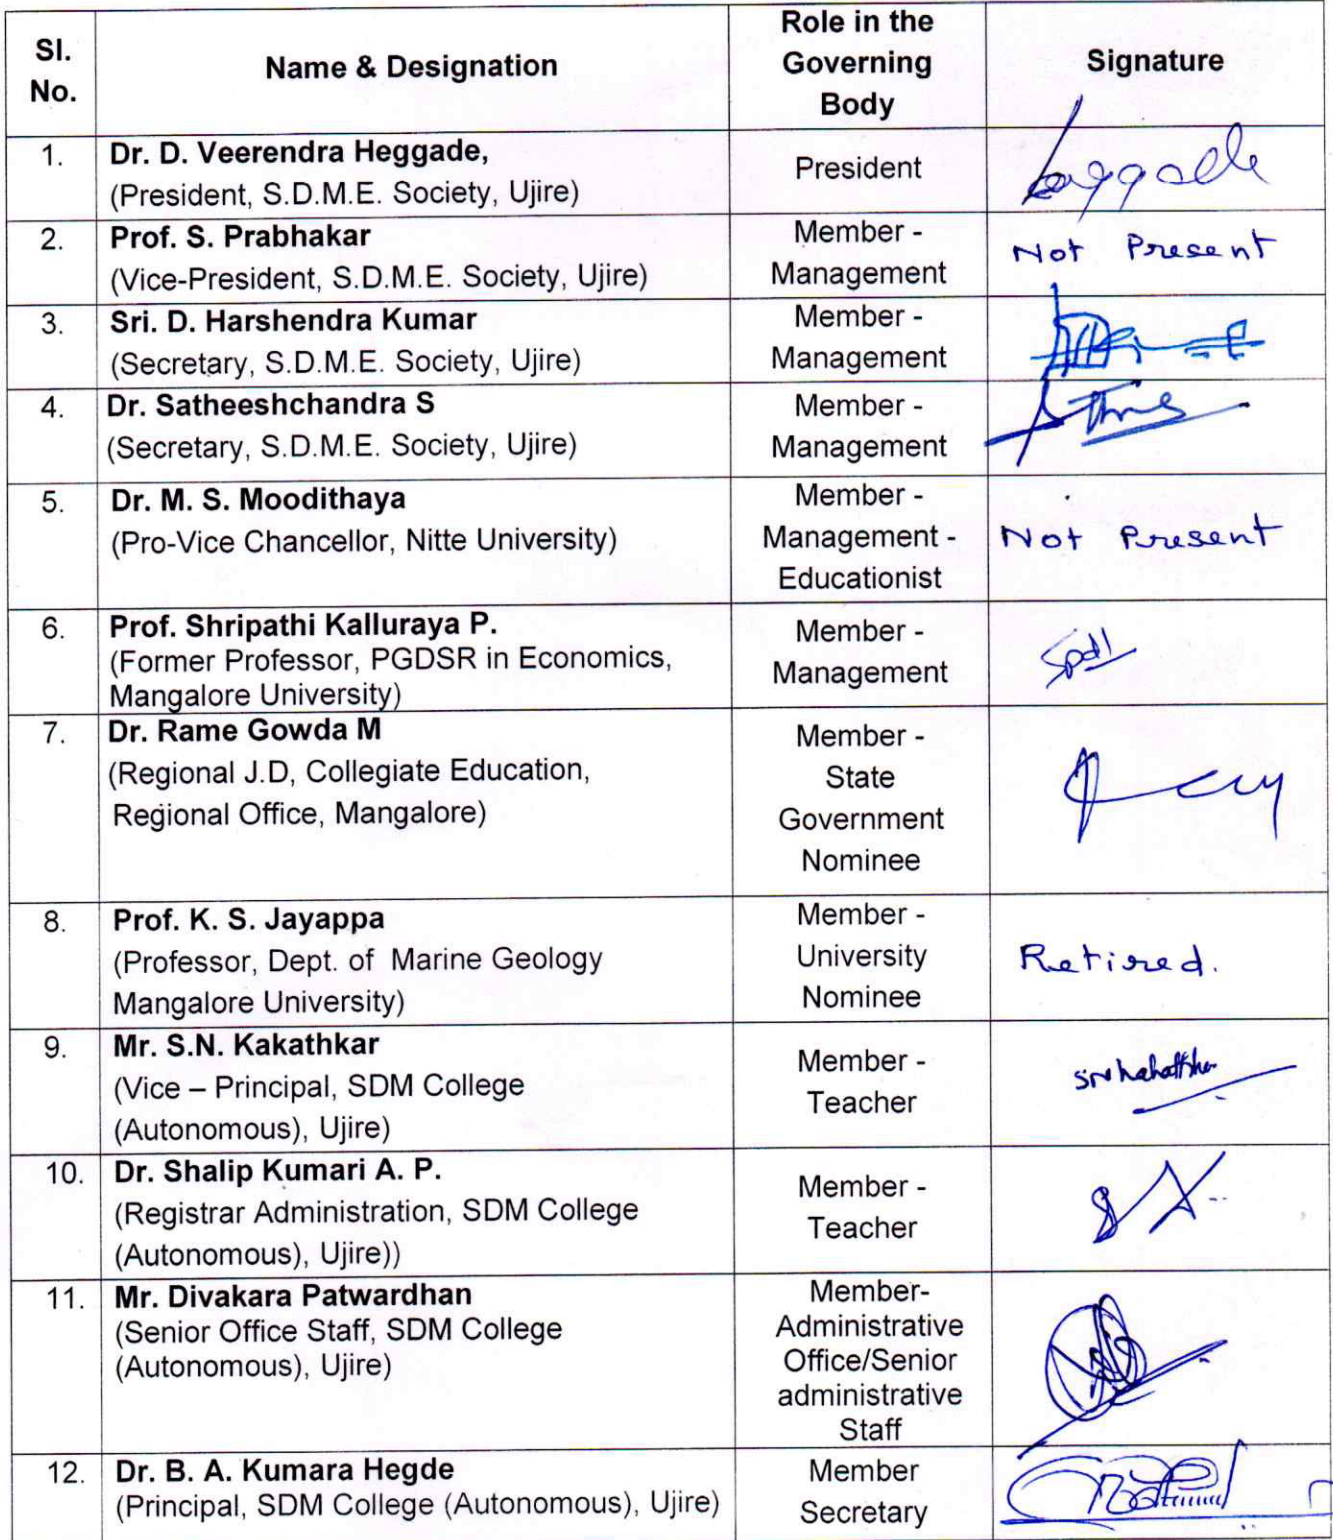 Sl.
No.
Name & Designation
Role in the
Governing
Body
Signature
1.
Dr. D. Veerendra Heggade,
(President, S.D.M.E. Society, Ujire)
President
2.
Prof. S. Prabhakar
(Vice-President, S.D.M.E. Society, Ujire)
Member -
Management
Not Present
3.
Sri. D. Harshendra Kumar
(Secretary, S.D.M.E. Society, Ujire)
Member -
Management
4.
Dr. Satheeshchandra S
(Secretary, S.D.M.E. Society, Ujire)
Member -
Management
5.
Dr. M. S. Moodithaya
(Pro-Vice Chancellor, Nitte University)
Member -
Management -
Educationist
Not Present
6.
Prof. Shripathi Kalluraya P.
(Former Professor, PGDSR in Economics,
Mangalore University)
Member -
Management
7.
Dr. Rame Gowda M
(Regional J.D, Collegiate Education,
Regional Office, Mangalore)
Member -
State
Government
Nominee
8.
Prof. K. S. Jayappa
(Professor, Dept. of Marine Geology
Mangalore University)
Member -
University
Nominee
Retired.
9.
Mr. S.N. Kakathkar
(Vice – Principal, SDM College
(Autonomous), Ujire)
Member -
Teacher
10.
Dr. Shalip Kumari A. P.
(Registrar Administration, SDM College
(Autonomous), Ujire))
Member -
Teacher
11.
Mr. Divakara Patwardhan
(Senior Office Staff, SDM College
(Autonomous), Ujire)
Member-
Administrative
Office/Senior
administrative
Staff
12.
Dr. B. A. Kumara Hegde
(Principal, SDM College (Autonomous), Ujire)
Member
Secretary